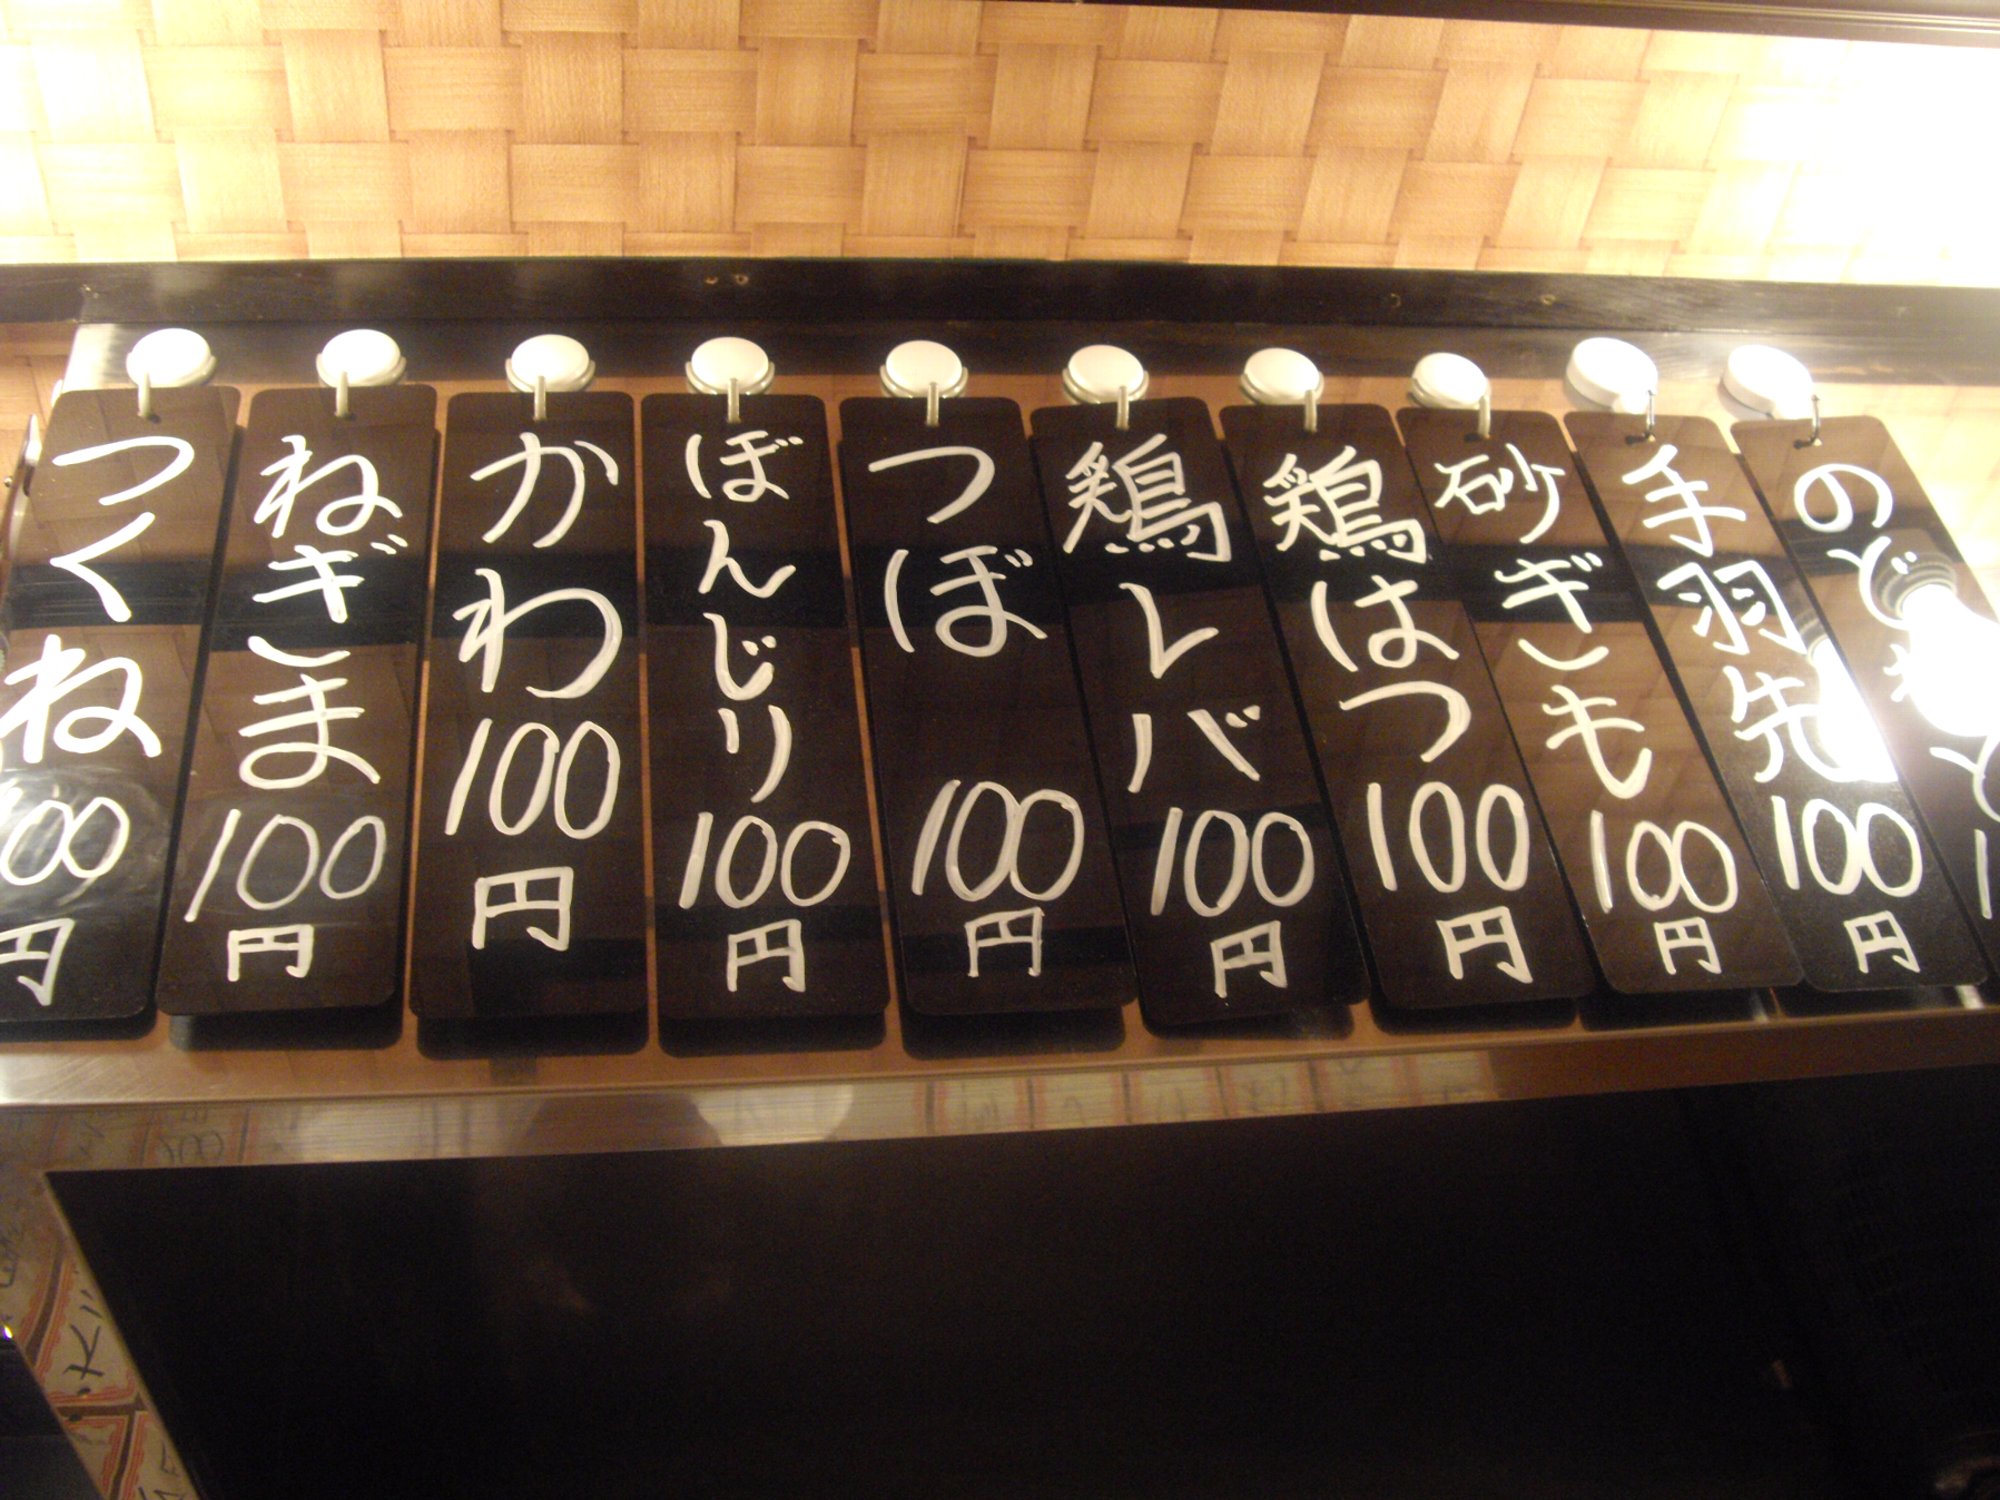 つくね 100円
ねぎま 100円
かわ 100円
ぼんじり 100円
つぼ 100円
鶏レバ 100円
鶏はつ 100円
砂ぎも 100円
手羽先 100円
のど